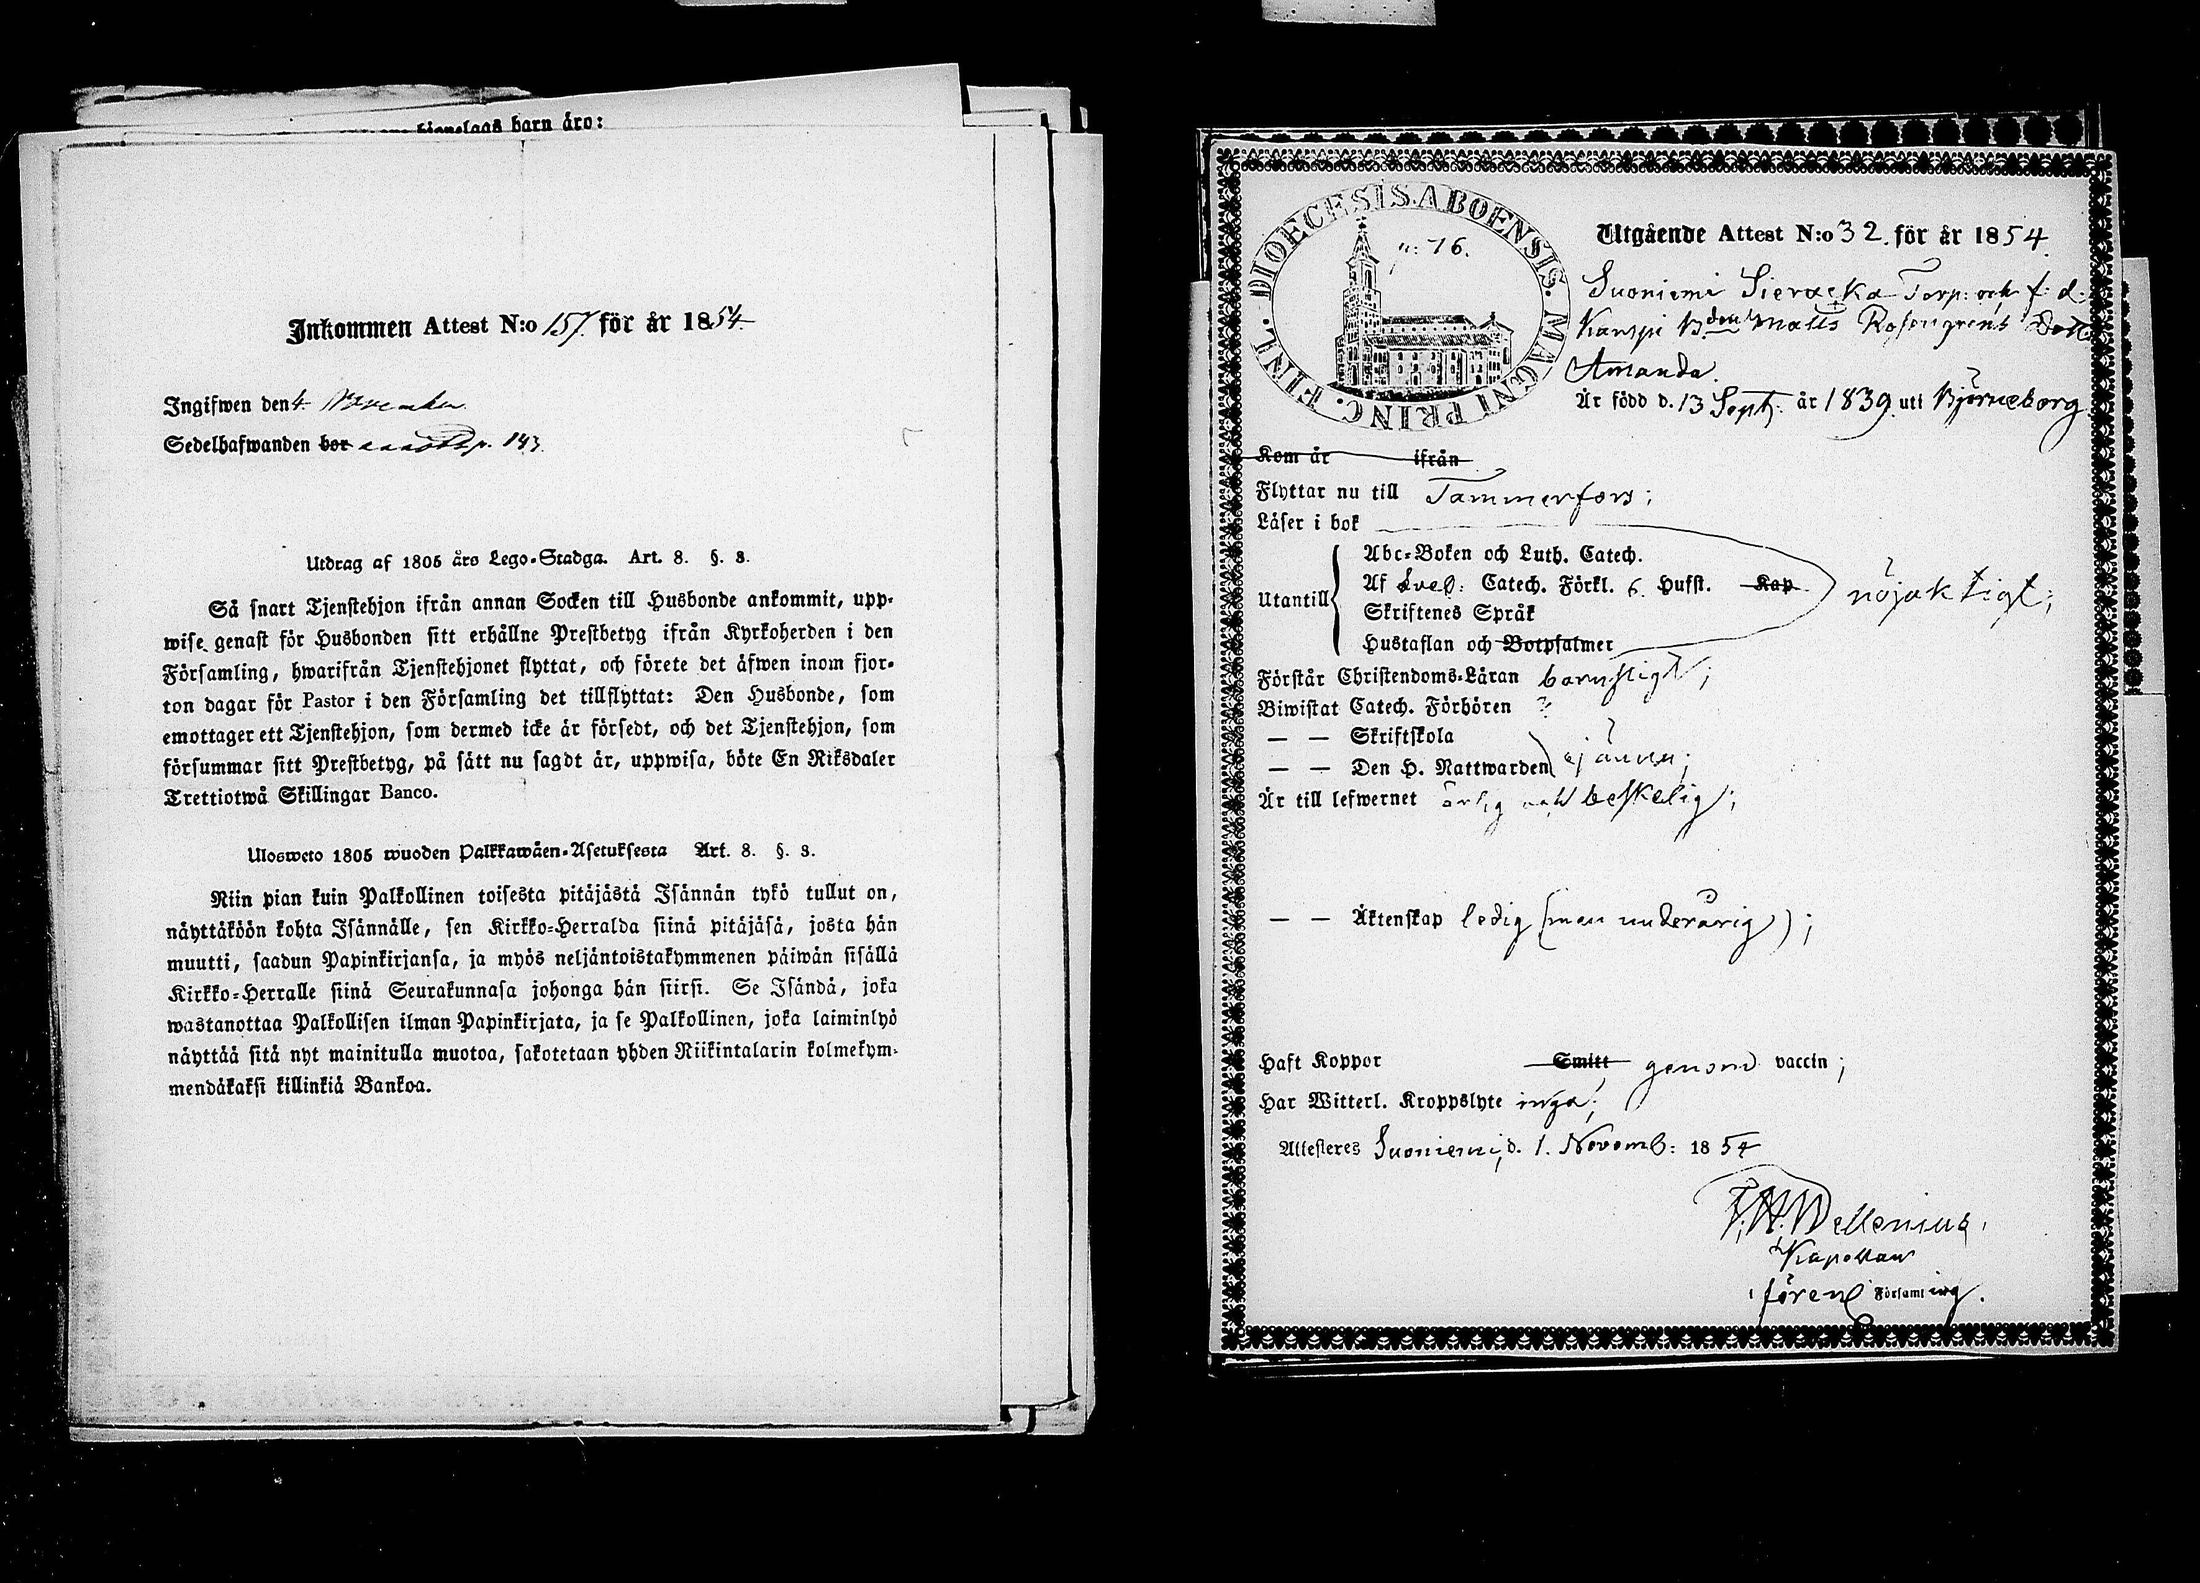 hjonelags barn äro:
Inkommen Attest N:o 157. för år 1854
Ingifwen den 4. November
Sedelhafwanden bor p. 143.
Utdrag af 1805 års Lego-Stadga. Art. 8. §. 3.
Så snart Tjenstehjon ifrån annan Socken till Husbonde ankommit, upp-
wise genast för Husbonden sitt erhållne Prestbetyg ifrån Kyrkoherden i den
Församling, hwarifrån Tjenstehjonet flyttat, och förete det äfwen inom fjor-
ton dagar för Pastor i den Församling det tillflyttat: Den Husbonde, som
emottager ett Tjenstehjon, som dermed icke är försedt, och det Tjenstehjon, som
försummar sitt Prestbetyg, på sätt nu sagdt är, uppwisa, böte En Riksdaler
Trettiotwå Skillingar Banco.
Ulosweto 1805 wuoden Palkkawäen-Asetuksesta Art. 8. §. 3.
Niin pian kuin Palkollinen toisesta pitäjästä Isännän tykö tullut on,
näyttäköön kohta Isännälle, sen Kirkko-Herralda siinä pitäjäsä, josta hän
muutti, saadun Papinkirjansa, ja myös neljäntoistakymmenen päiwän sisällä
Kirkko-Herralle siinä Seurakunnasa johonga hän siirsi. Se Isändä, joka
wastanottaa Palkollisen ilman Papinkirjata, ja se Palkollinen, joka laiminlyö
näyttää sitä nyt mainitulla muotoa, sakotetaan yhden Riikintalarin kolmekym-
mendäkaksi killinkiä Bankoa.
DIOECESIS. ABOENSIS. MAGNI PRINC. FINL.
p: 76.
Utgående Attest N:o 32. för år 1854.
Suoniemi Torp: och f: d:
Matts Rosengrens Dott:
Amanda.
Är född d. 13 Sept: år 1839. uti Björneborg.
Kom år ifrån
Flyttar nu till Tammerfors;
Läser i bok
Utantill
Abc-Boken och Luth. Catech.
Af Sveb: Catech. Förkl. 6. Hufst. Kap
Skriftenes Språk
Hustaflan och Botpsalmer
nöjaktigt;
Förstår Christendoms-Läran barnsligt;
Biwistat Catech. Förhören
— — Skriftskola
— — Den H. Nattwarden ej ännu;
Är till lefwernet ärlig och beskedlig;
— — Äktenskap ledig (men underårig);
Haft Koppor Smitt genom vaccin;
Har Witterl. Kroppslyte inga;
Attesteres Suoniemi, d. 1. Novemb: 1854
Wellenius.
Kapellan
i förend Församling.